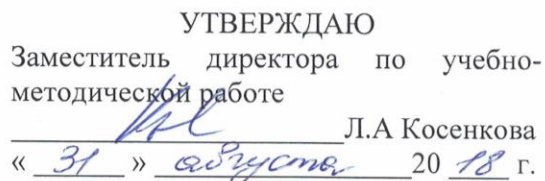 УТВЕРЖДАЮ
Заместитель директора по учебно-
методической работе
Л.А Косенкова
« 31 » августа 20 18 г.